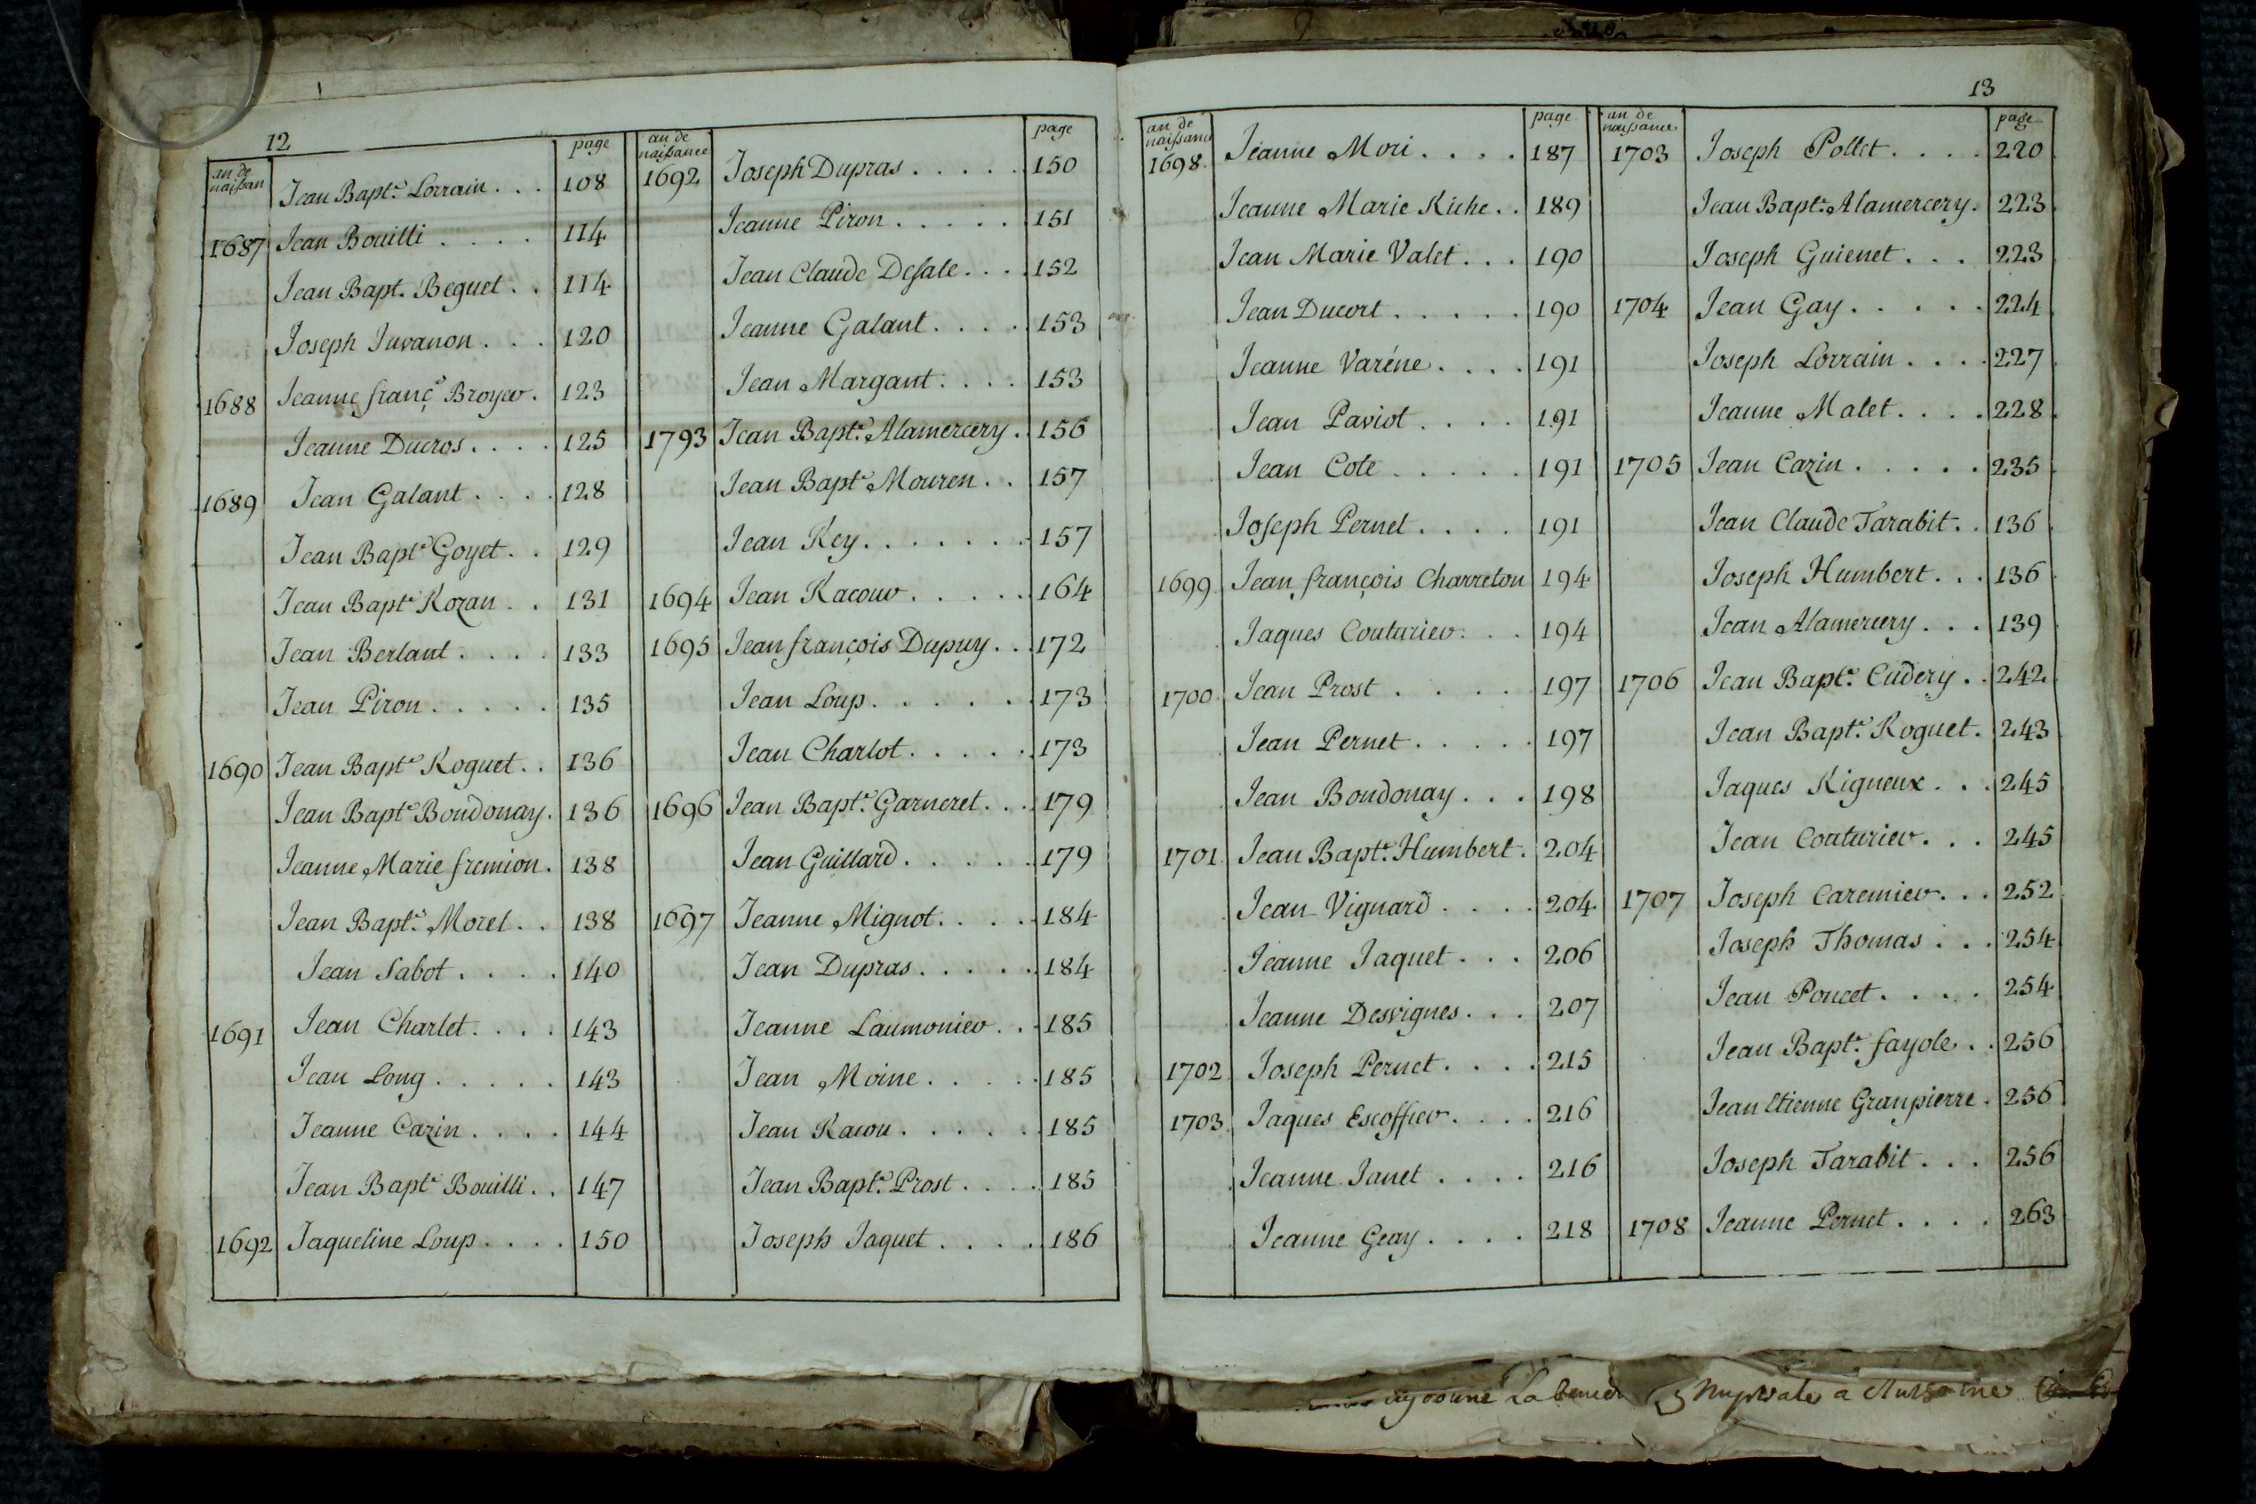 12
an de naissan
page
Jean Bapt.e Lorrain . . . 108
1687 Jean Bouilli . . . . 114
Jean Bapt. Beguet . . 114
Joseph Juvanon . . . 120
1688 Jeanne franç.s Broyer . 123
Jeanne Ducros . . . . 125
1689 Jean Galant . . . . 128
Jean Bapt.e Goyet . . 129
Jean Bapt.e Rozan . . 131
Jean Berlant . . . . 133
Jean Piron . . . . . 135
1690 Jean Bapt.e Roguet . . 136
Jean Bapt.e Boudonay . 136
Jeanne Marie fremion . 138
Jean Bapt.e Morel . . 138
Jean Sabot . . . . 140
1691 Jean Charlet . . . . 143
Jean Long . . . . . 143
Jeanne Cazin . . . . 144
Jean Bapt.e Bouilli . . 147
1692 Jaqueline Loup . . . . 150
an de naissance
page
1692 Joseph Dupras . . . . . 150
Jeanne Piron . . . . . 151
Jean Claude Desale . . . 152
Jeanne Galant . . . . 153
Jean Margant . . . . 153
1793 Jean Bapt.e Alamercery . 156
Jean Bapt.e Mouren . . 157
Jean Rey . . . . . . . 157
1694 Jean Racour . . . . . 164
1695 Jean françois Dupuy . . 172
Jean Loup . . . . . . 173
Jean Charlot . . . . . 173
1696 Jean Bapt.e Garneret . . . 179
Jean Guillard . . . . . 179
1697 Jeanne Mignot . . . . 184
Jean Dupras . . . . . 184
Jeanne Laumonier . . 185
Jean Moine . . . . . 185
Jean Racou . . . . . 185
Jean Bapt.e Prost . . . . 185
Joseph Jaquet . . . . 186
13
an de naissance
page
1698 Jeanne Mori . . . . 187
Jeanne Marie Riche . . 189
Jean Marie Valet . . . 190
Jean Ducort . . . . . 190
Jeanne Varéne . . . . 191
Jean Paviot . . . . 191
Jean Cote . . . . . 191
Joseph Pernet . . . . 191
1699 Jean françois Charreton 194
Jaques Couturier . . . 194
1700 Jean Prost . . . . . 197
Jean Pernet . . . . . 197
Jean Boudonay . . . 198
1701 Jean Bapt.e Humbert . 204
Jean Vignard . . . . 204
Jeanne Jaquet . . . 206
Jeanne Desvignes . . . 207
1702 Joseph Pernet . . . . 215
1703 Jaques Escoffier . . . . 216
Jeanne Janet . . . . 216
Jeanne Geay . . . . 218
an de naissance
page
1703 Joseph Pollet . . . . 220
Jean Bapt.e Alamercery . 223
Joseph Guienet . . . 223
1704 Jean Gay . . . . . 224
Joseph Lorrain . . . . 227
Jeanne Malet . . . . 228
1705 Jean Cazin . . . . . 235
Jean Claude Tarabit . . 136
Joseph Humbert . . . 136
Jean Alamercery . . . 139
1706 Jean Bapt.e Cudery . . 242
Jean Bapt.e Roguet . 243
Jaques Rigneux . . . 245
Jean Couturier . . . 245
1707 Joseph Caremier . . . 252
Joseph Thomas . . . 254
Jean Poncet . . . . 254
Jean Bapt.e fayole . . 256
Jean Etienne Granpierre . 256
Joseph Tarabit . . . 256
1708 Jeanne Pernet . . . . 263